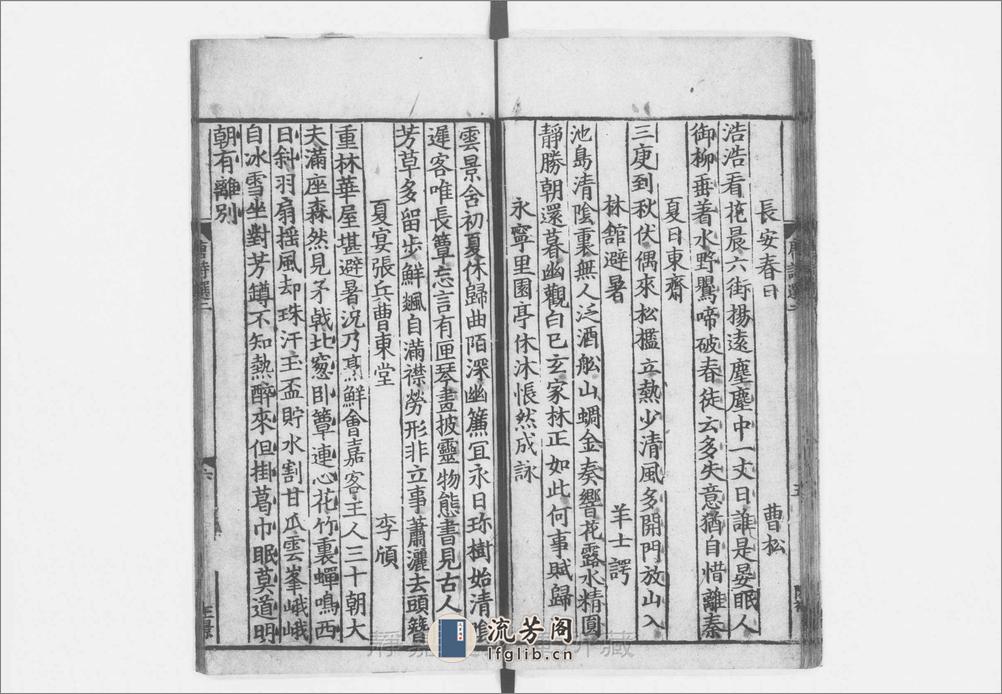 長安春日　曹松
浩浩看花晨六街揚遠塵塵中一丈日誰是晏眠人
御柳垂著水野鶯啼破春徒云多失意猶自惜離秦
夏日東齋
三庚到秋伏偶來松檻立熱少清風多開門放山入
林館避暑　羊士諤
池島清陰裏無人泛酒舩山蜩金奏響花露水精圓
靜勝朝還暮幽觀白已玄家林正如此何事賦歸
永寧里園亭休沐悵然成詠
雲景含初夏休歸曲陌深幽簾宜永日珎樹始清陰
遲客唯長簟忘言有匣琴畫披靈物態書見古人
芳草多留步鮮飈自滿襟勞形非立事蕭灑去頭簪
夏宴張兵曹東堂　李頎
重林華屋堪避暑況乃烹鮮會嘉客主人三十朝大
夫滿座森然見矛戟北窓卧簟連心花竹裏蟬鳴西
日斜羽扇揺風却珠汗玉盃貯水割甘瓜雲峯峨峨
自冰雪坐對芳罇不知熱醉來但掛葛巾眠莫道明
朝有離別
唐詩選二
六
流芳阁
lfglib.cn